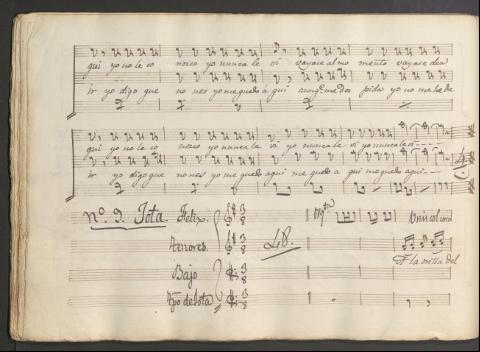 qui yo no le co nosco yo nunca le vi vayase al mo mento vayase de a
ir yo digo que no nos yo me quedo a qui aunq.e me des pida yo no me he de
qui yo no le co nosco yo nunca le vi yo nunca le vi yo nunca le vi
ir yo digo que no nos yo me quedo aqui me quedo a qui me quedo a qui
nº 9. Jota. Felix.
Tenores.
A la orilla del
Bajo
tpo de Jota